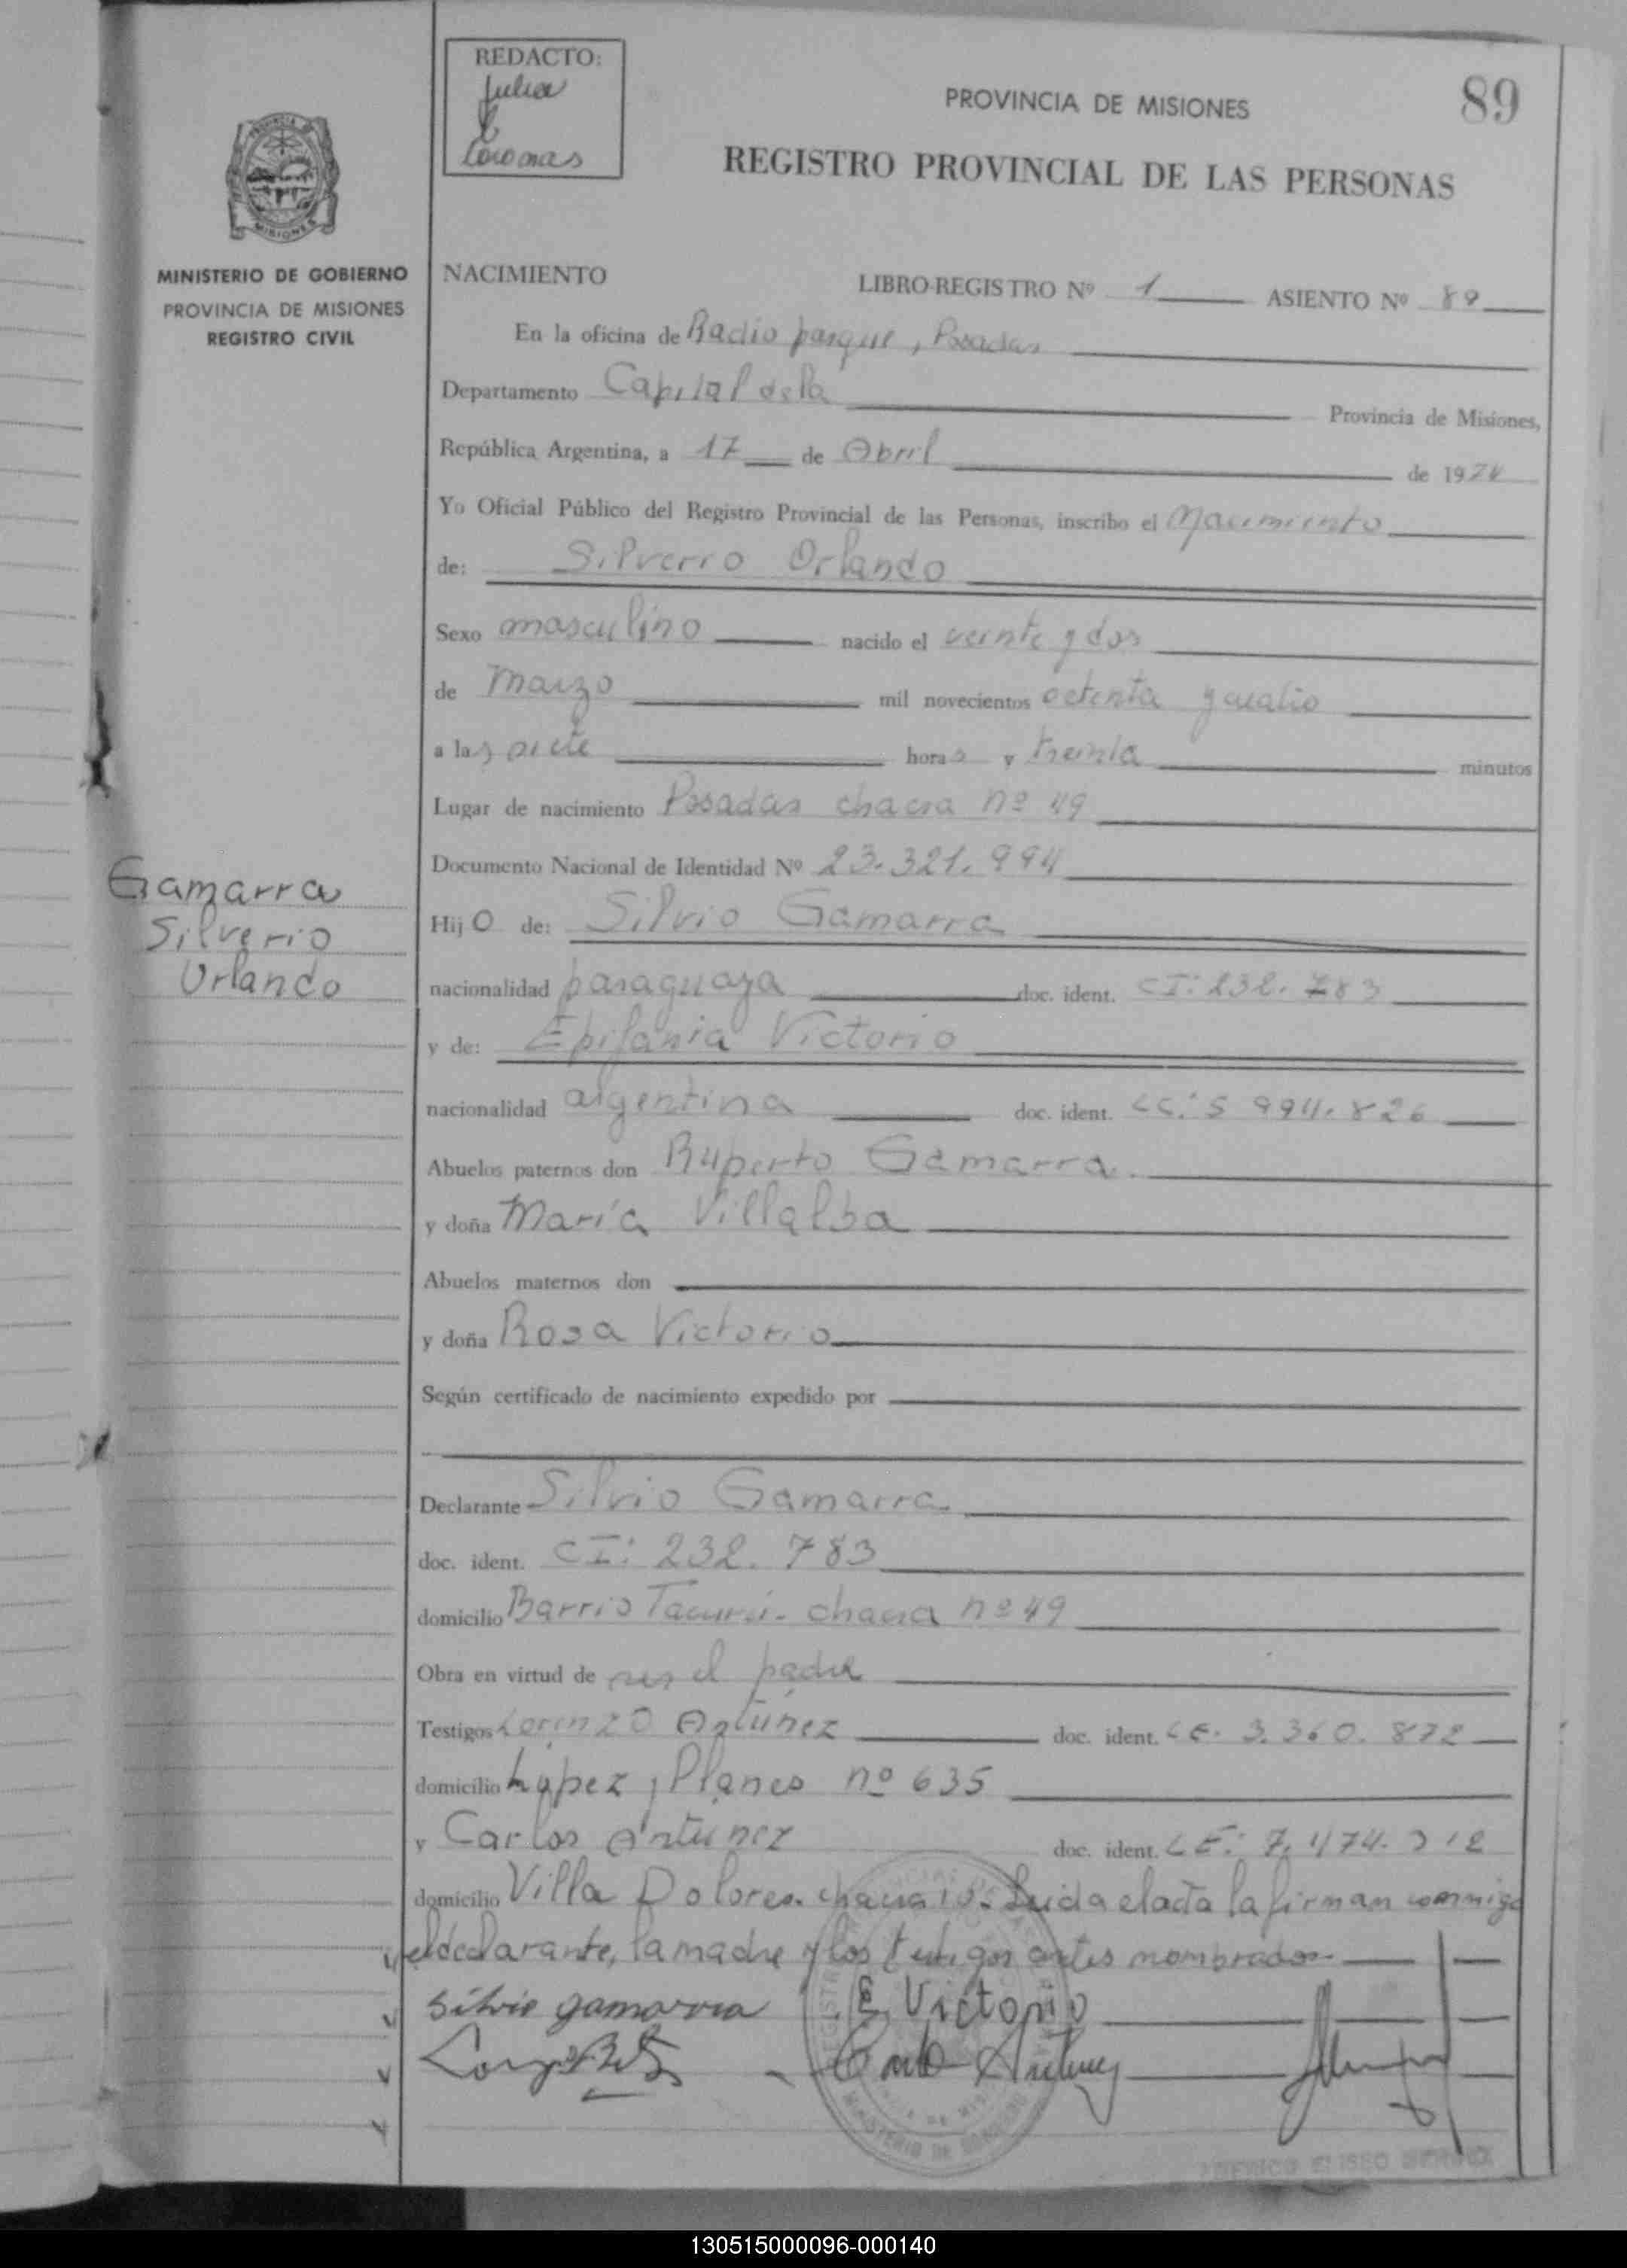 REDACTO:
Julia
E
Coromas
PROVINCIA DE MISIONES
89
REGISTRO PROVINCIAL DE LAS PERSONAS
MISIONES
MINISTERIO DE GOBIERNO
PROVINCIA DE MISIONES
REGISTRO CIVIL
NACIMIENTO
LIBRO-REGISTRO Nº 1 ASIENTO Nº 89
En la oficina de Radio parque, Posadas
Departamento Capital de la Provincia de Misiones,
República Argentina, a 17 de Abril de 1974
Yo Oficial Público del Registro Provincial de las Personas, inscribo el Nacimiento
de: Silverio Orlando
Sexo masculino nacido el veinte y dos
de Marzo mil novecientos setenta y cuatro
a las siete horas y treinta minutos
Lugar de nacimiento Posadas chacra nº 49
Documento Nacional de Identidad Nº 23.321.994
Gamarra
Silverio
Orlando
Hijo de: Silvio Gamarra
nacionalidad paraguaya doc. ident. CI: 232.783
y de: Epifania Victorio
nacionalidad argentina doc. ident. LC: 5 994.826
Abuelos paternos don Ruperto Gamarra
y doña María Villalba
Abuelos maternos don
y doña Rosa Victorio
Según certificado de nacimiento expedido por
Declarante Silvio Gamarra
doc. ident. CI: 232.783
domicilio Barrio Tacurú - chacra nº 49
Obra en virtud de ser el padre
Testigos Lorenzo Antúnez doc. ident. LE. 3.360.872
domicilio López y Planes nº 635
y Carlos Antúnez doc. ident. LE: 7.474.
domicilio Villa Dolores. chacra Leida el acta la firman conmigo
el declarante, la madre y los testigos antes nombrados
Silvio gamarra E Victorio
Antunez
MINISTERIO DE GOBIERNO
130515000096-000140